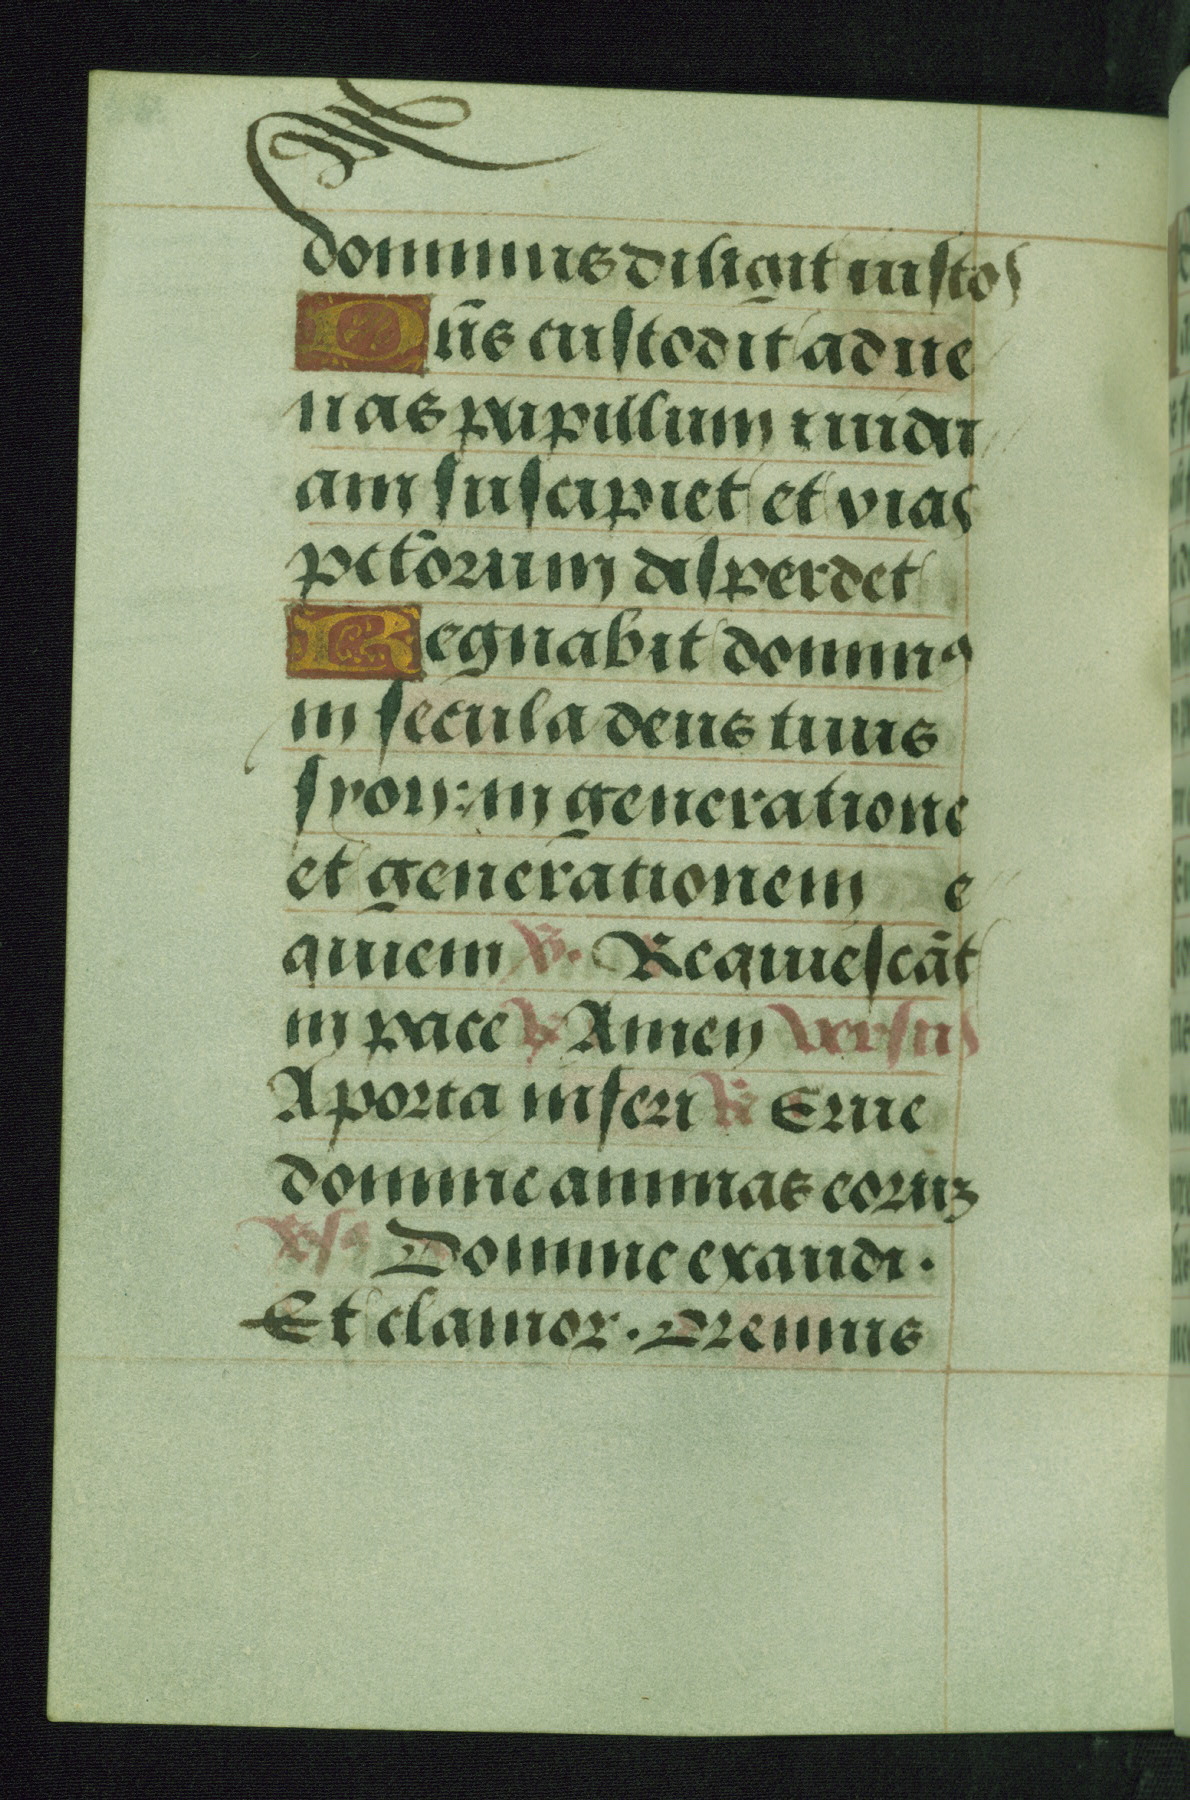 dominus diligit iustos
Dn̄s custodit adue
nas pupillum ⁊ uidu
am suscipiet et vias
pctōrum disperdet
Regnabit dominꝰ
in secula deus tuus
syon: in generatione
et generationem e
quiem ℟. Requiescāt
in pace ℟ Amen versus
A porta inferi ℟ Erue
domine animas eoruꝫ
v̄sꝰ Domine exaudi.
Et clamor. Oremus